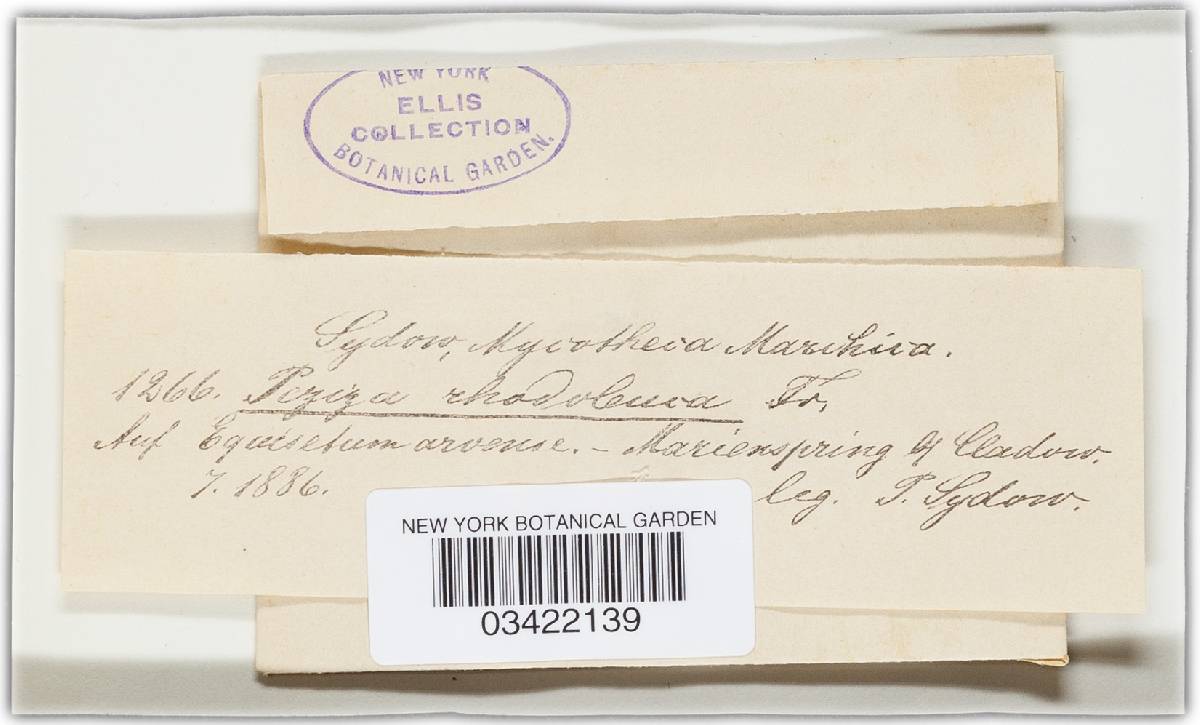 NEW YORK
ELLIS
COLLECTION
BOTANICAL GARDEN.
Sydow, Mycotheca Marchica.
1266. Peziza rhodoleuca Fr.
Auf Equisetum arvense. - Marienspring b/ Cladow.
7. 1886. leg. P. Sydow.
NEW YORK BOTANICAL GARDEN
03422139